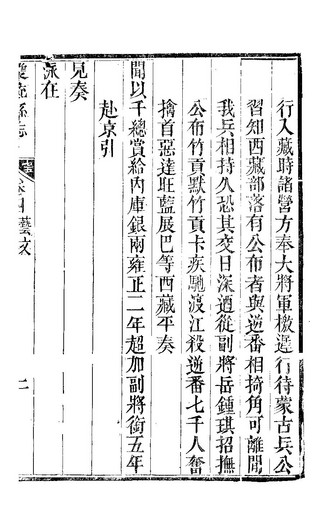 行入藏時諸營方奉大將軍檄遲行待蒙古兵公
習知西藏部落有公布者與逆番相掎角可離間
我兵相持久恐其交日深迺從副將岳鍾琪招撫
公布竹貢默竹貢卡疾馳渡江殺逆番七千人奮
擒首惡達旺藍展巴等西藏平奏
聞以千總賞給內庫銀兩雍正二年超加副將銜五年
赴京引
見奏
泳在
縣志
藝文